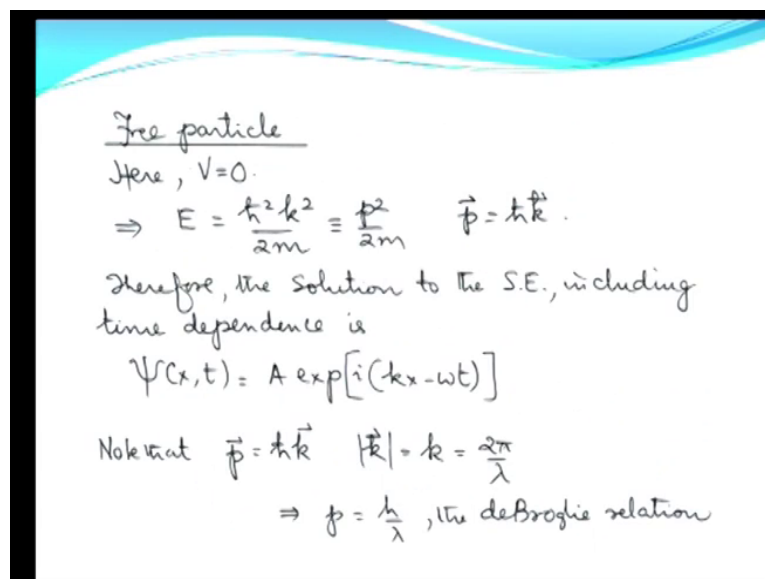 Free particle
Here, V=0.
⇒ E = ħ²k²/2m ≡ p²/2m   p⃗ = ħk⃗.
Therefore, the solution to the S.E., including
time dependence is
Ψ(x,t) = A exp[i(kx-ωt)]
Note that p⃗ = ħk⃗   |k⃗| = k = 2π/λ
⇒ p = h/λ, the deBroglie relation